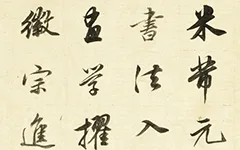 米芾元
書法入
畫学擢
徽宗進